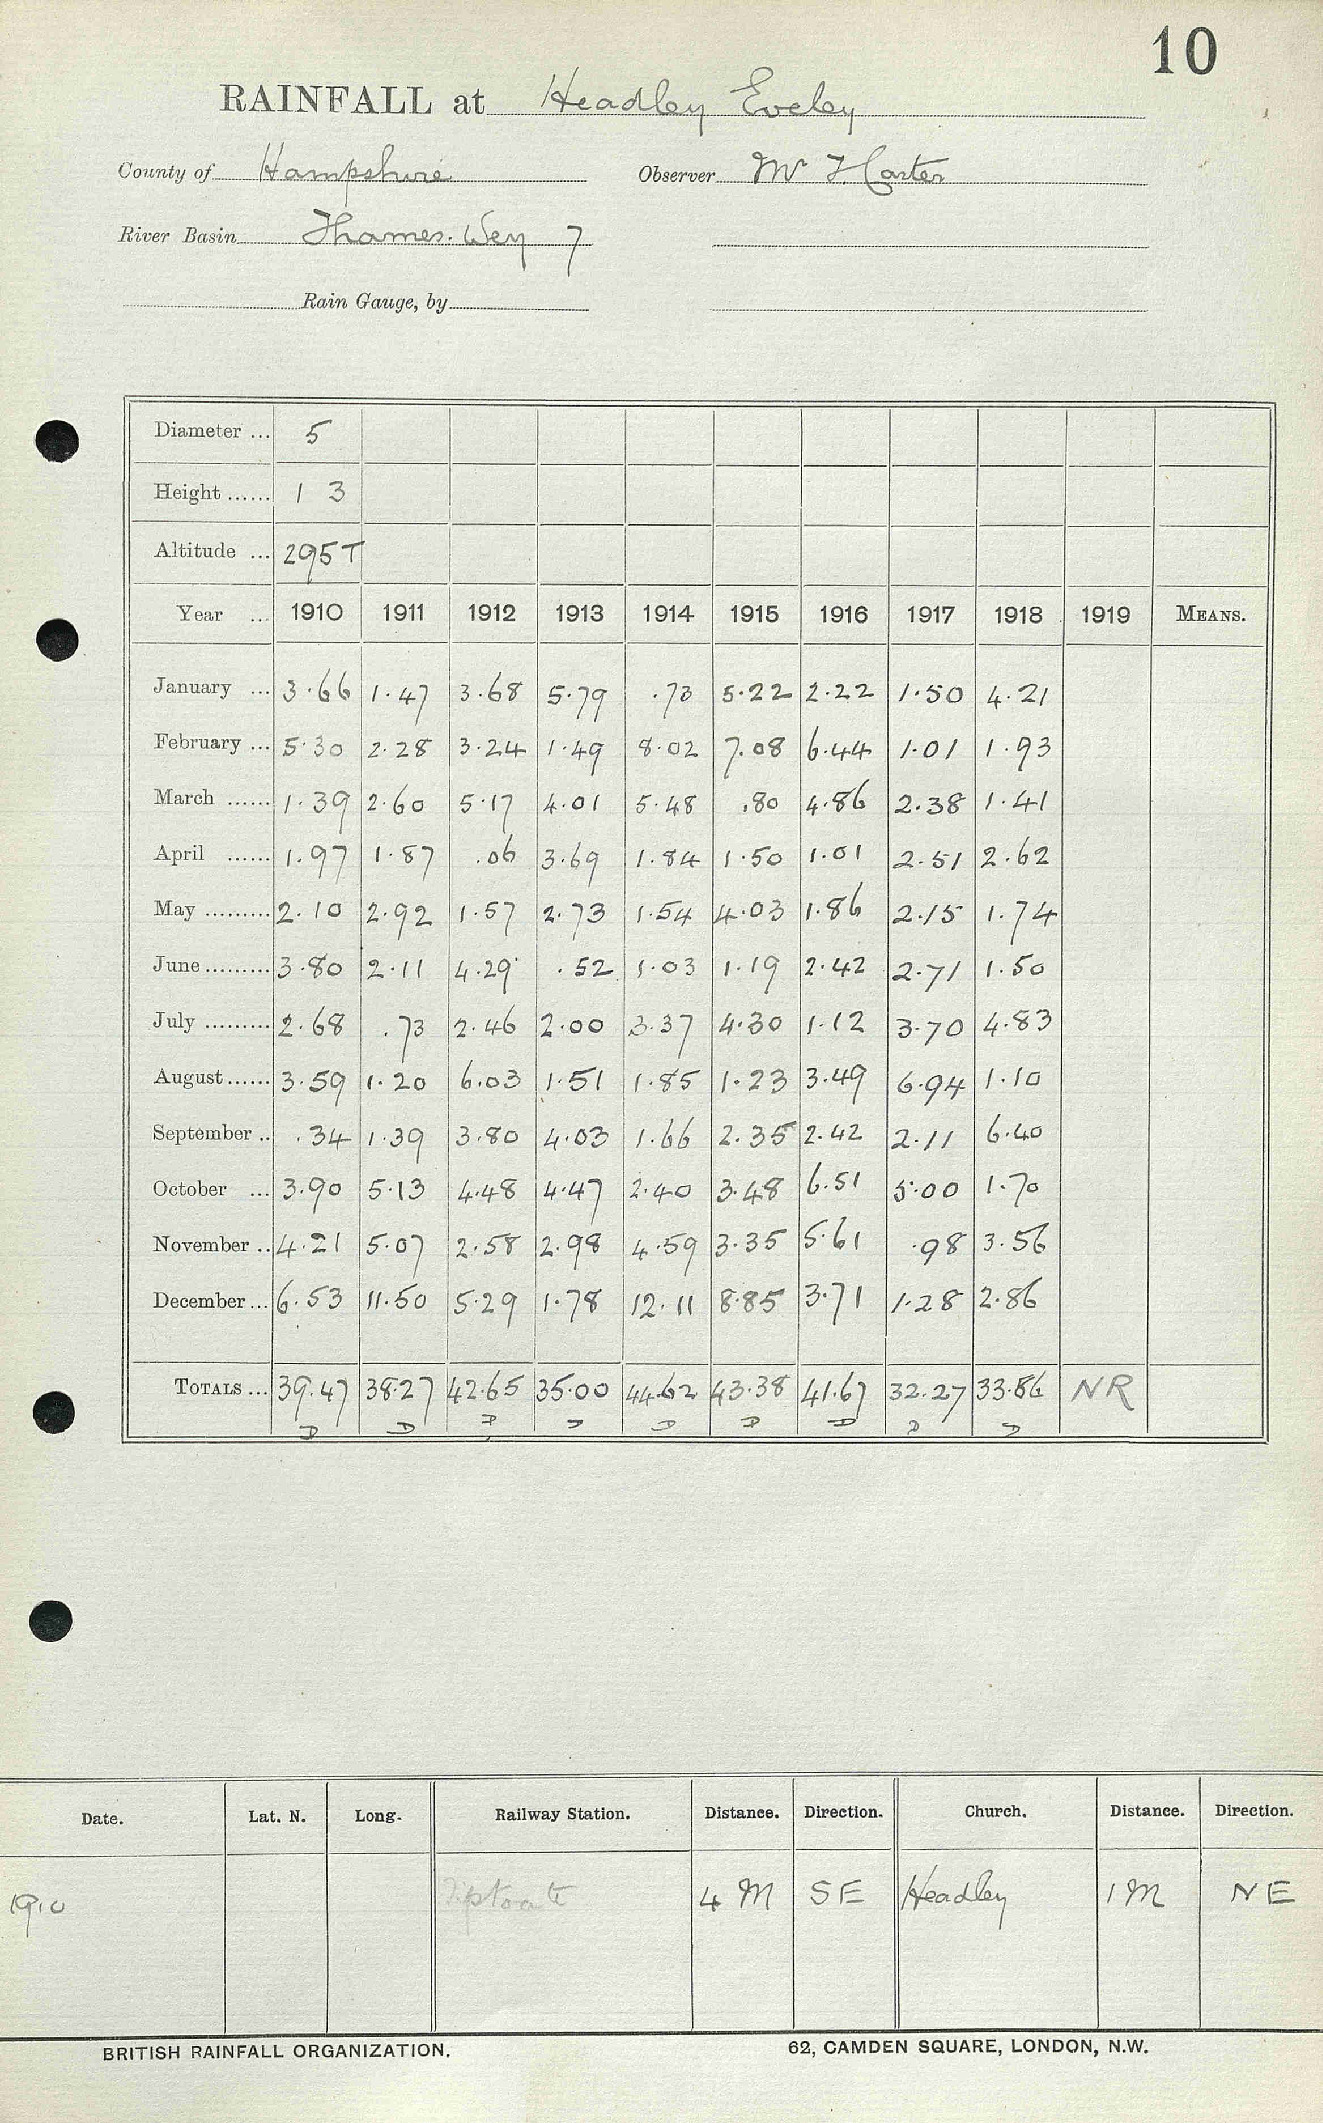 10
RAINFALL at Headley Eveley
County of Hampshire Observer Mr F. Carter
River Basin Thames. Wey 7
Rain Gauge, by
Diameter ... 5
Height ...... 1 3
Altitude ... 295 T
Year ... 1910 1911 1912 1913 1914 1915 1916 1917 1918 1919 MEANS.
January ... 3.66 1.47 3.68 5.79 .73 5.22 2.22 1.50 4.21
February ... 5.30 2.28 3.24 1.49 8.02 7.08 6.44 1.01 1.93
March ...... 1.39 2.60 5.17 4.01 5.48 .80 4.86 2.38 1.41
April ...... 1.97 1.87 .06 3.69 1.84 1.50 1.01 2.51 2.62
May ......... 2.10 2.92 1.57 2.73 1.54 4.03 1.86 2.15 1.74
June ......... 3.80 2.11 4.29 .52 1.03 1.19 2.42 2.71 1.50
July ......... 2.68 .73 2.46 2.00 3.37 4.30 1.12 3.70 4.83
August ...... 3.59 1.20 6.03 1.51 1.85 1.23 3.49 6.94 1.10
September .. .34 1.39 3.80 4.03 1.66 2.35 2.42 2.11 6.40
October ... 3.90 5.13 4.48 4.47 2.40 3.48 6.51 5.00 1.70
November .. 4.21 5.07 2.58 2.98 4.59 3.35 5.61 .98 3.56
December ... 6.53 11.50 5.29 1.78 12.11 8.85 3.71 1.28 2.86
TOTALS ... 39.47 38.27 42.65 35.00 44.62 43.38 41.67 32.27 33.86 NR
D D D D D D D D D
Date. Lat. N. Long. Railway Station. Distance. Direction. Church. Distance. Direction.
1910 4 M SE Headley 1 M NE
BRITISH RAINFALL ORGANIZATION. 62, CAMDEN SQUARE, LONDON, N.W.